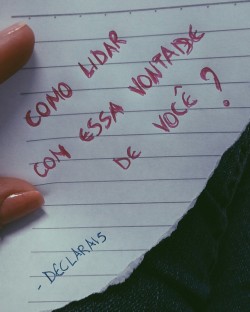 COMO LIDAR
COM ESSA VONTADE
DE VOCÊ?
- DECLARAIS